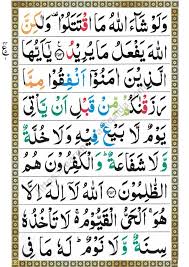 وَلَوْ شَآءَ اللّٰهُ مَا اقْتَتَلُوْا۟ وَلٰكِنَّ
اللّٰهَ يَفْعَلُ مَا يُرِيْدُ ۟ يٰۤاَيُّهَا
الَّذِيْنَ اٰمَنُوْۤا اَنْفِقُوْا مِمَّا
رَزَقْنٰكُمْ مِّنْ قَبْلِ اَنْ يَّاْتِيَ
يَوْمٌ لَّا بَيْعٌ فِيْهِ وَلَا خُلَّةٌ
وَّلَا شَفَاعَةٌ ؕ وَالْكٰفِرُوْنَ هُمُ
الظّٰلِمُوْنَ ۟ اَللّٰهُ لَاۤ اِلٰهَ اِلَّا
هُوَ ۚ اَلْحَيُّ الْقَيُّوْمُ ۚ لَا تَاْخُذُهٗ
سِنَةٌ وَّلَا نَوْمٌ ؕ لَهٗ مَا فِي